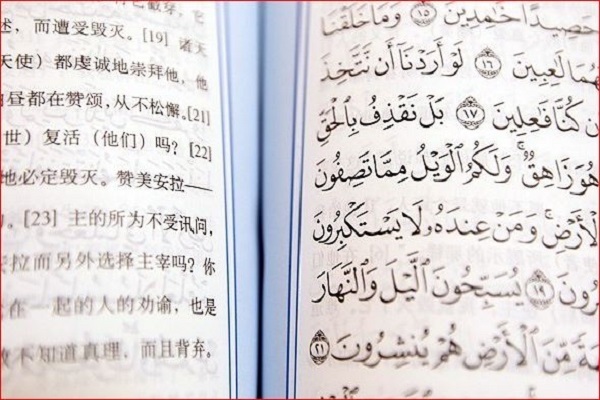 ，它
述，而遭受毁灭。[19] 诸天
天使）都虔诚地崇拜他，他
昼都在赞颂，从不松懈。[21]
世）复活（他们）吗？[22]
地必定毁灭。赞美安拉——
。[23] 主的所为不受讯问，
拉而另外选择主宰吗？你
在一起的人的劝谕，也是
不知道真理，而且背弃。
حَصِيدًا خَٰمِدِينَ ١٥ وَمَا خَلَقْنَا
هُمَا لَٰعِبِينَ ١٦ لَوْ أَرَدْنَآ أَن نَّتَّخِذَ
إِن كُنَّا فَٰعِلِينَ ١٧ بَلْ نَقْذِفُ بِٱلْحَقِّ
هُوَ زَاهِقٌ ۚ وَلَكُمُ ٱلْوَيْلُ مِمَّا تَصِفُونَ
ٱلْأَرْضِ ۚ وَمَنْ عِندَهُۥ لَا يَسْتَكْبِرُونَ
رُونَ ١٩ يُسَبِّحُونَ ٱلَّيْلَ وَٱلنَّهَارَ
مِّنَ ٱلْأَرْضِ هُمْ يُنشِرُونَ ٢١